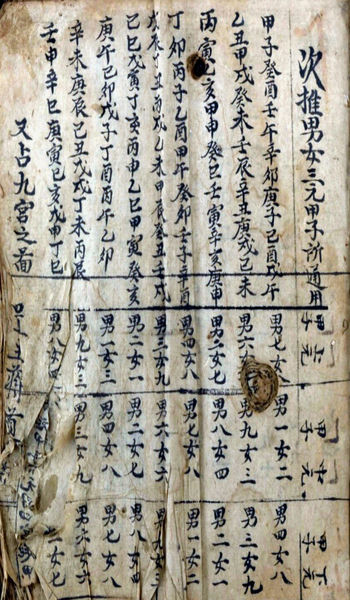 次推男女三元甲子所通用
甲子癸酉壬午辛卯庚子己酉戊午
乙丑甲戌癸未壬辰辛丑庚戌己未
丙寅乙亥甲申癸巳壬寅辛亥庚申
丁卯丙子乙酉甲午癸卯壬子辛酉
戊辰丁丑丙戌乙未甲辰癸丑壬戌
己巳戊寅丁亥丙申乙巳甲寅癸亥
庚午己卯戊子丁酉丙午乙卯
辛未庚辰己丑戊戌丁未丙辰
壬申辛巳庚寅己亥戊申丁巳
又占九宮之啚
甲子上元
男七女八
男六
男二女七
男四女八
男三女九
男二女一
男一女三
男九女三
男八女四
甲子中元
男一女二
男九女三
男八女四
男七女八
男六女六
男二女七
男四女八
男三女九
甲子下元
男四女八
男三女九
男二女一
男一女二
男九女
男八女四
男七女八
男六女六
女七